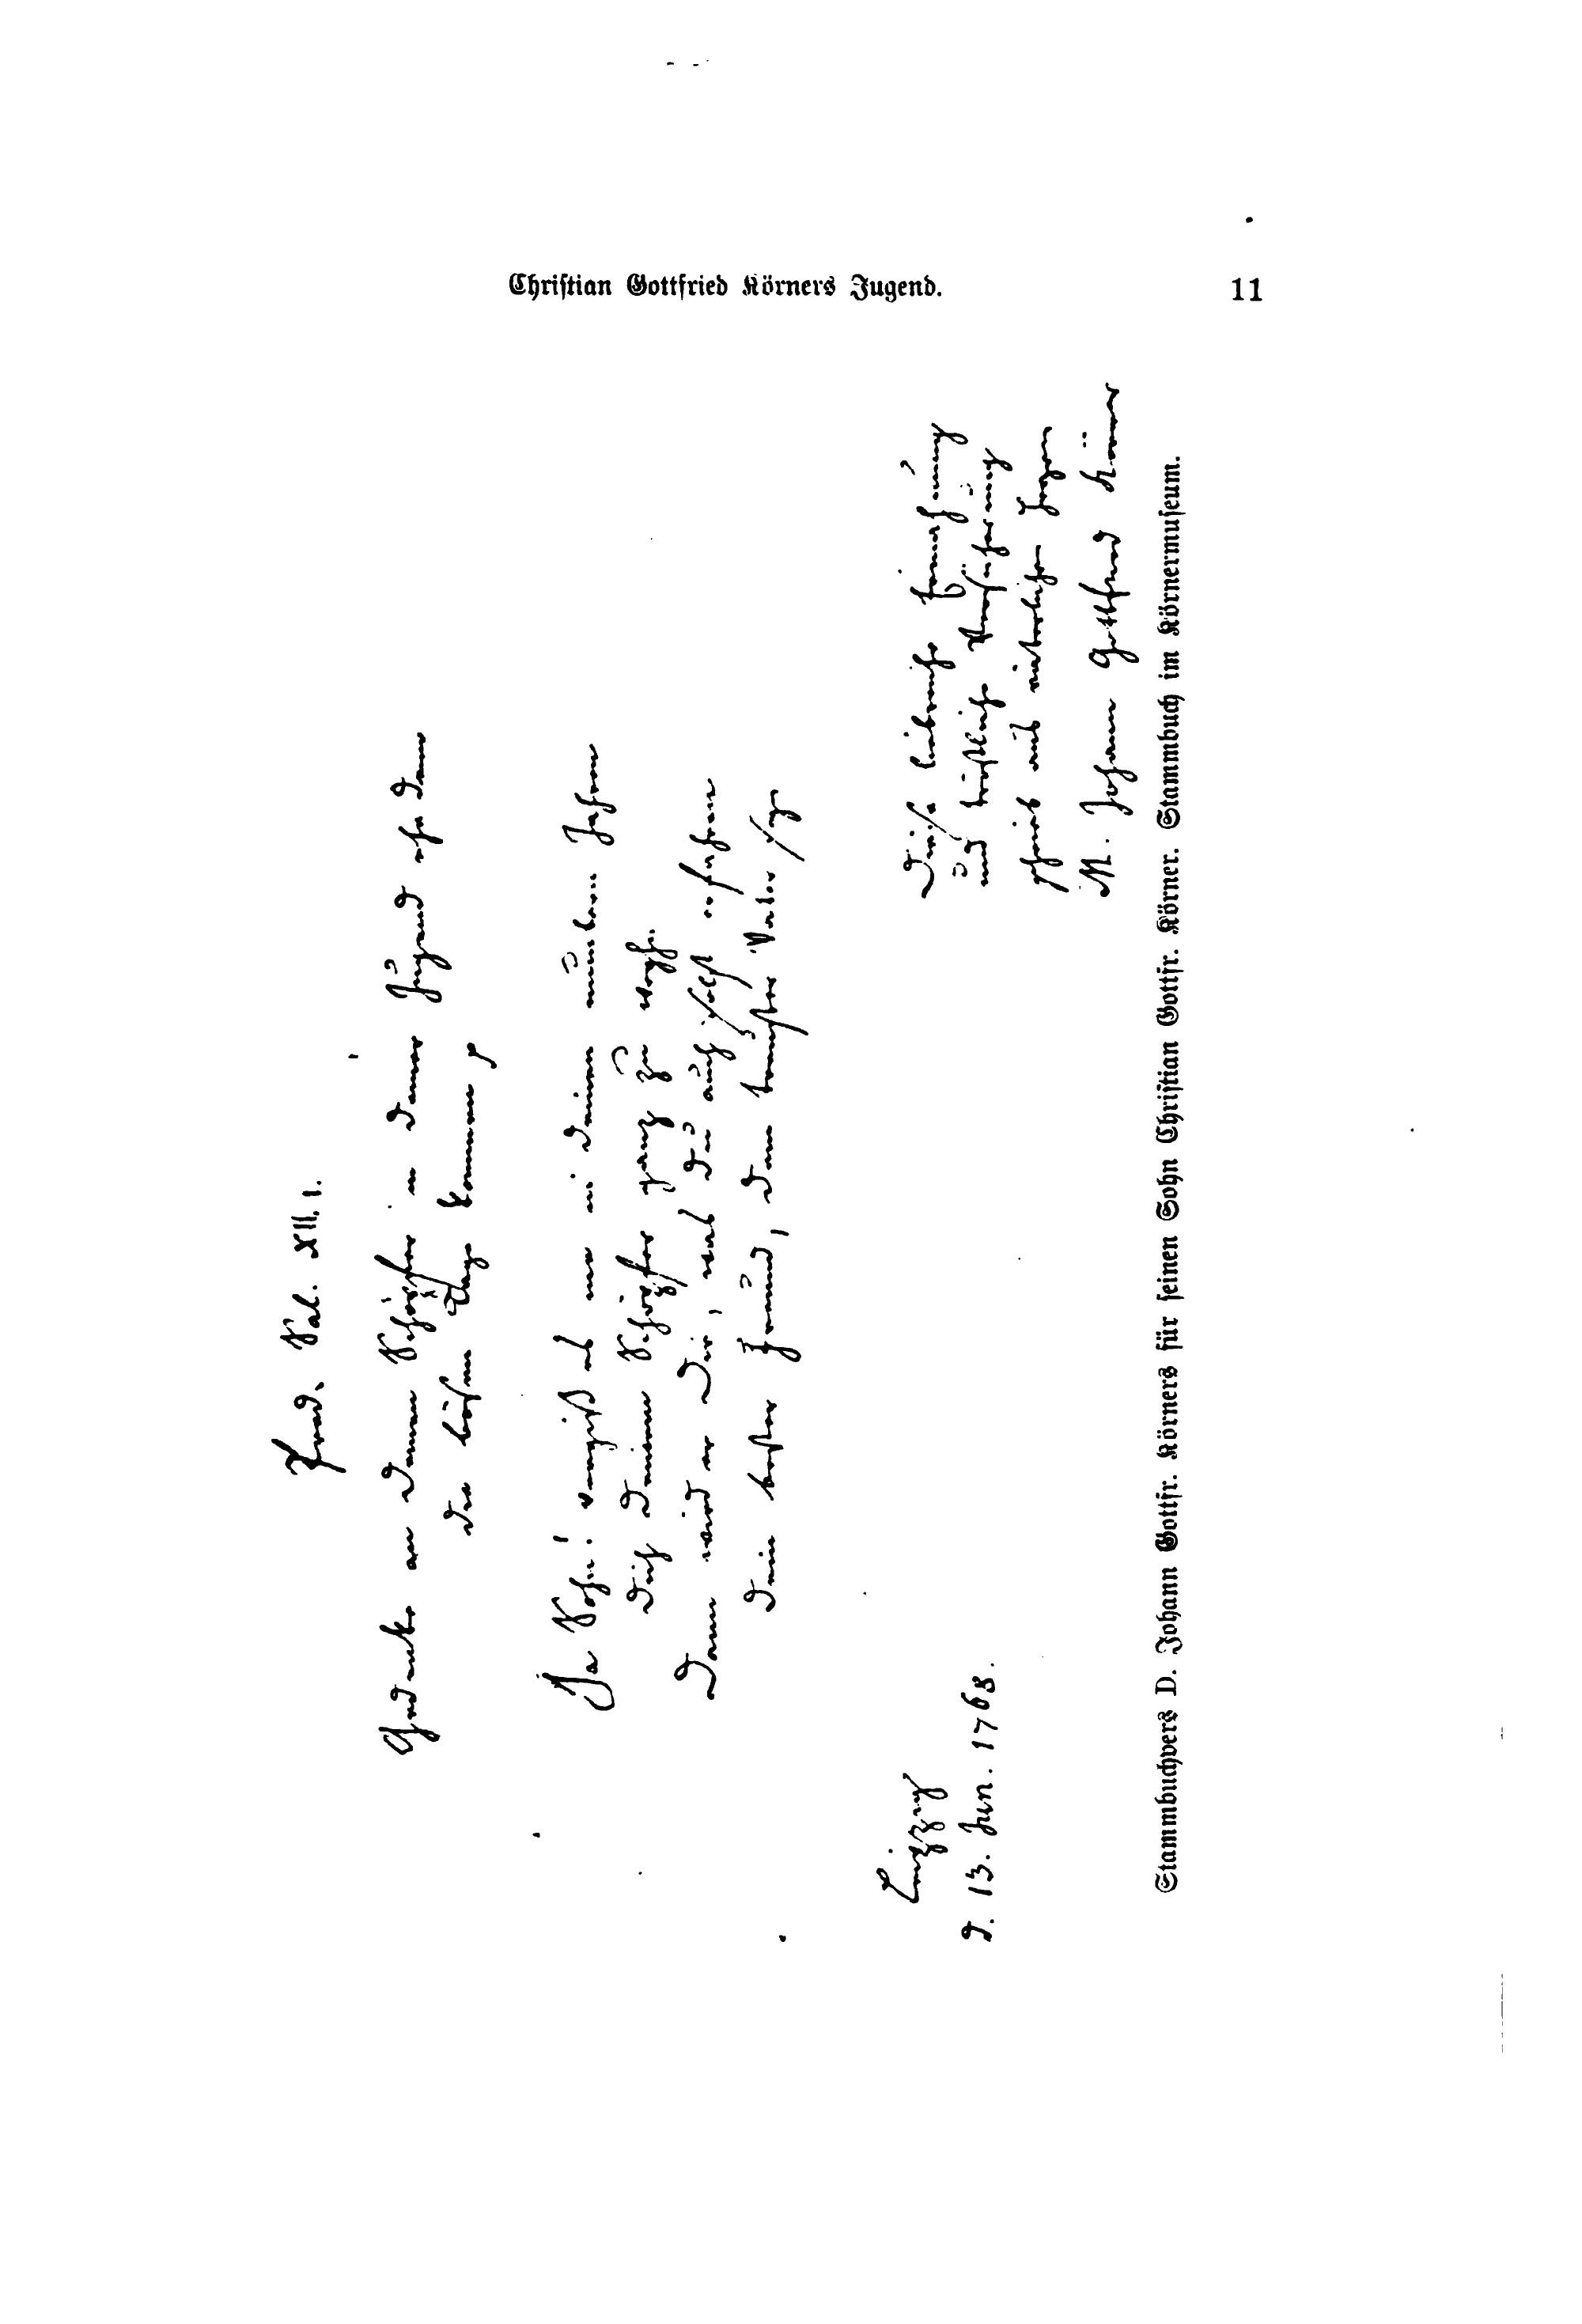 Christian Gottfried Körners Jugend.
11
Pred. Sal. XII. 1.
Gedenke an deinen Schöpfer in deiner Jugend ehe denn
die bösen Tage kommen
Ja Sohn! vergiß es nie in deinen muntern Jahren
dich deinem Schöpfer ganz zu weyhn.
Dann wird er Dir, was du auch selbst erfahren
dein bester Freund, dein treuster Vater seyn
Leipzig
d. 13. Jun. 1768.
Diese liebreiche Ermahnung
und tröstliche Versicherung
schrieb aus väterlichen Herzen
M. Johann Gottfried Körner
Stammbuchvers D. Johann Gottfr. Körners für seinen Sohn Christian Gottfr. Körner. Stammbuch im Körnermuseum.